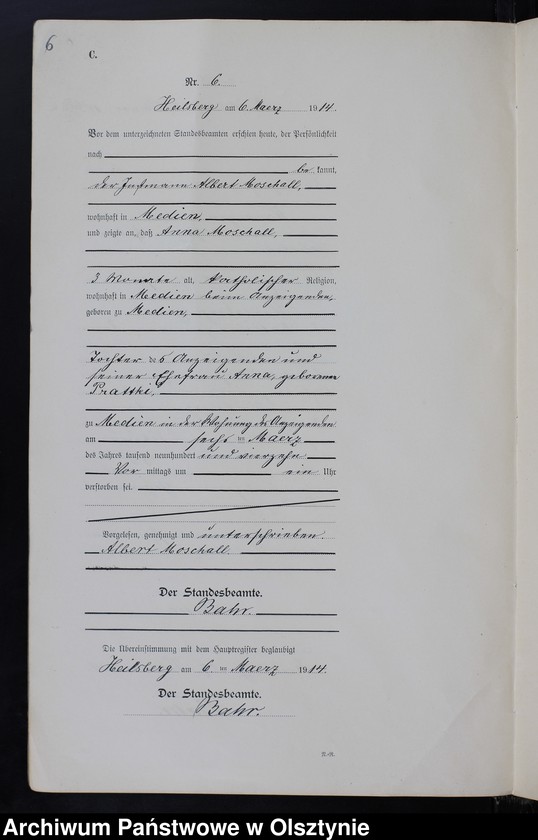 6
C.
Nr. 6.
Heilsberg am 6. Maerz 1914.
Vor dem unterzeichneten Standesbeamten erschien heute, der Persönlichkeit
nach
be kannt,
der Instmann Albert Moschall,
wohnhaft in Medien,
und zeigte an, daß Anna Moschall,
3 Monate alt, katholischer Religion,
wohnhaft in Medien beim Anzeigenden,
geboren zu Medien,
Tochter des Anzeigenden und
seiner Ehefrau Anna, geborenen
Prattki,
zu Medien in der Wohnung des Anzeigenden
am sechsten Maerz
des Jahres tausend neunhundert und vierzehn
Vor mittags um ein Uhr
verstorben sei.
Vorgelesen, genehmigt und unterschrieben.
Albert Moschall.
Der Standesbeamte.
Bahr.
Die Übereinstimmung mit dem Hauptregister beglaubigt
Heilsberg am 6. ten Maerz 1914.
Der Standesbeamte.
Bahr.
Archiwum Państwowe w Olsztynie